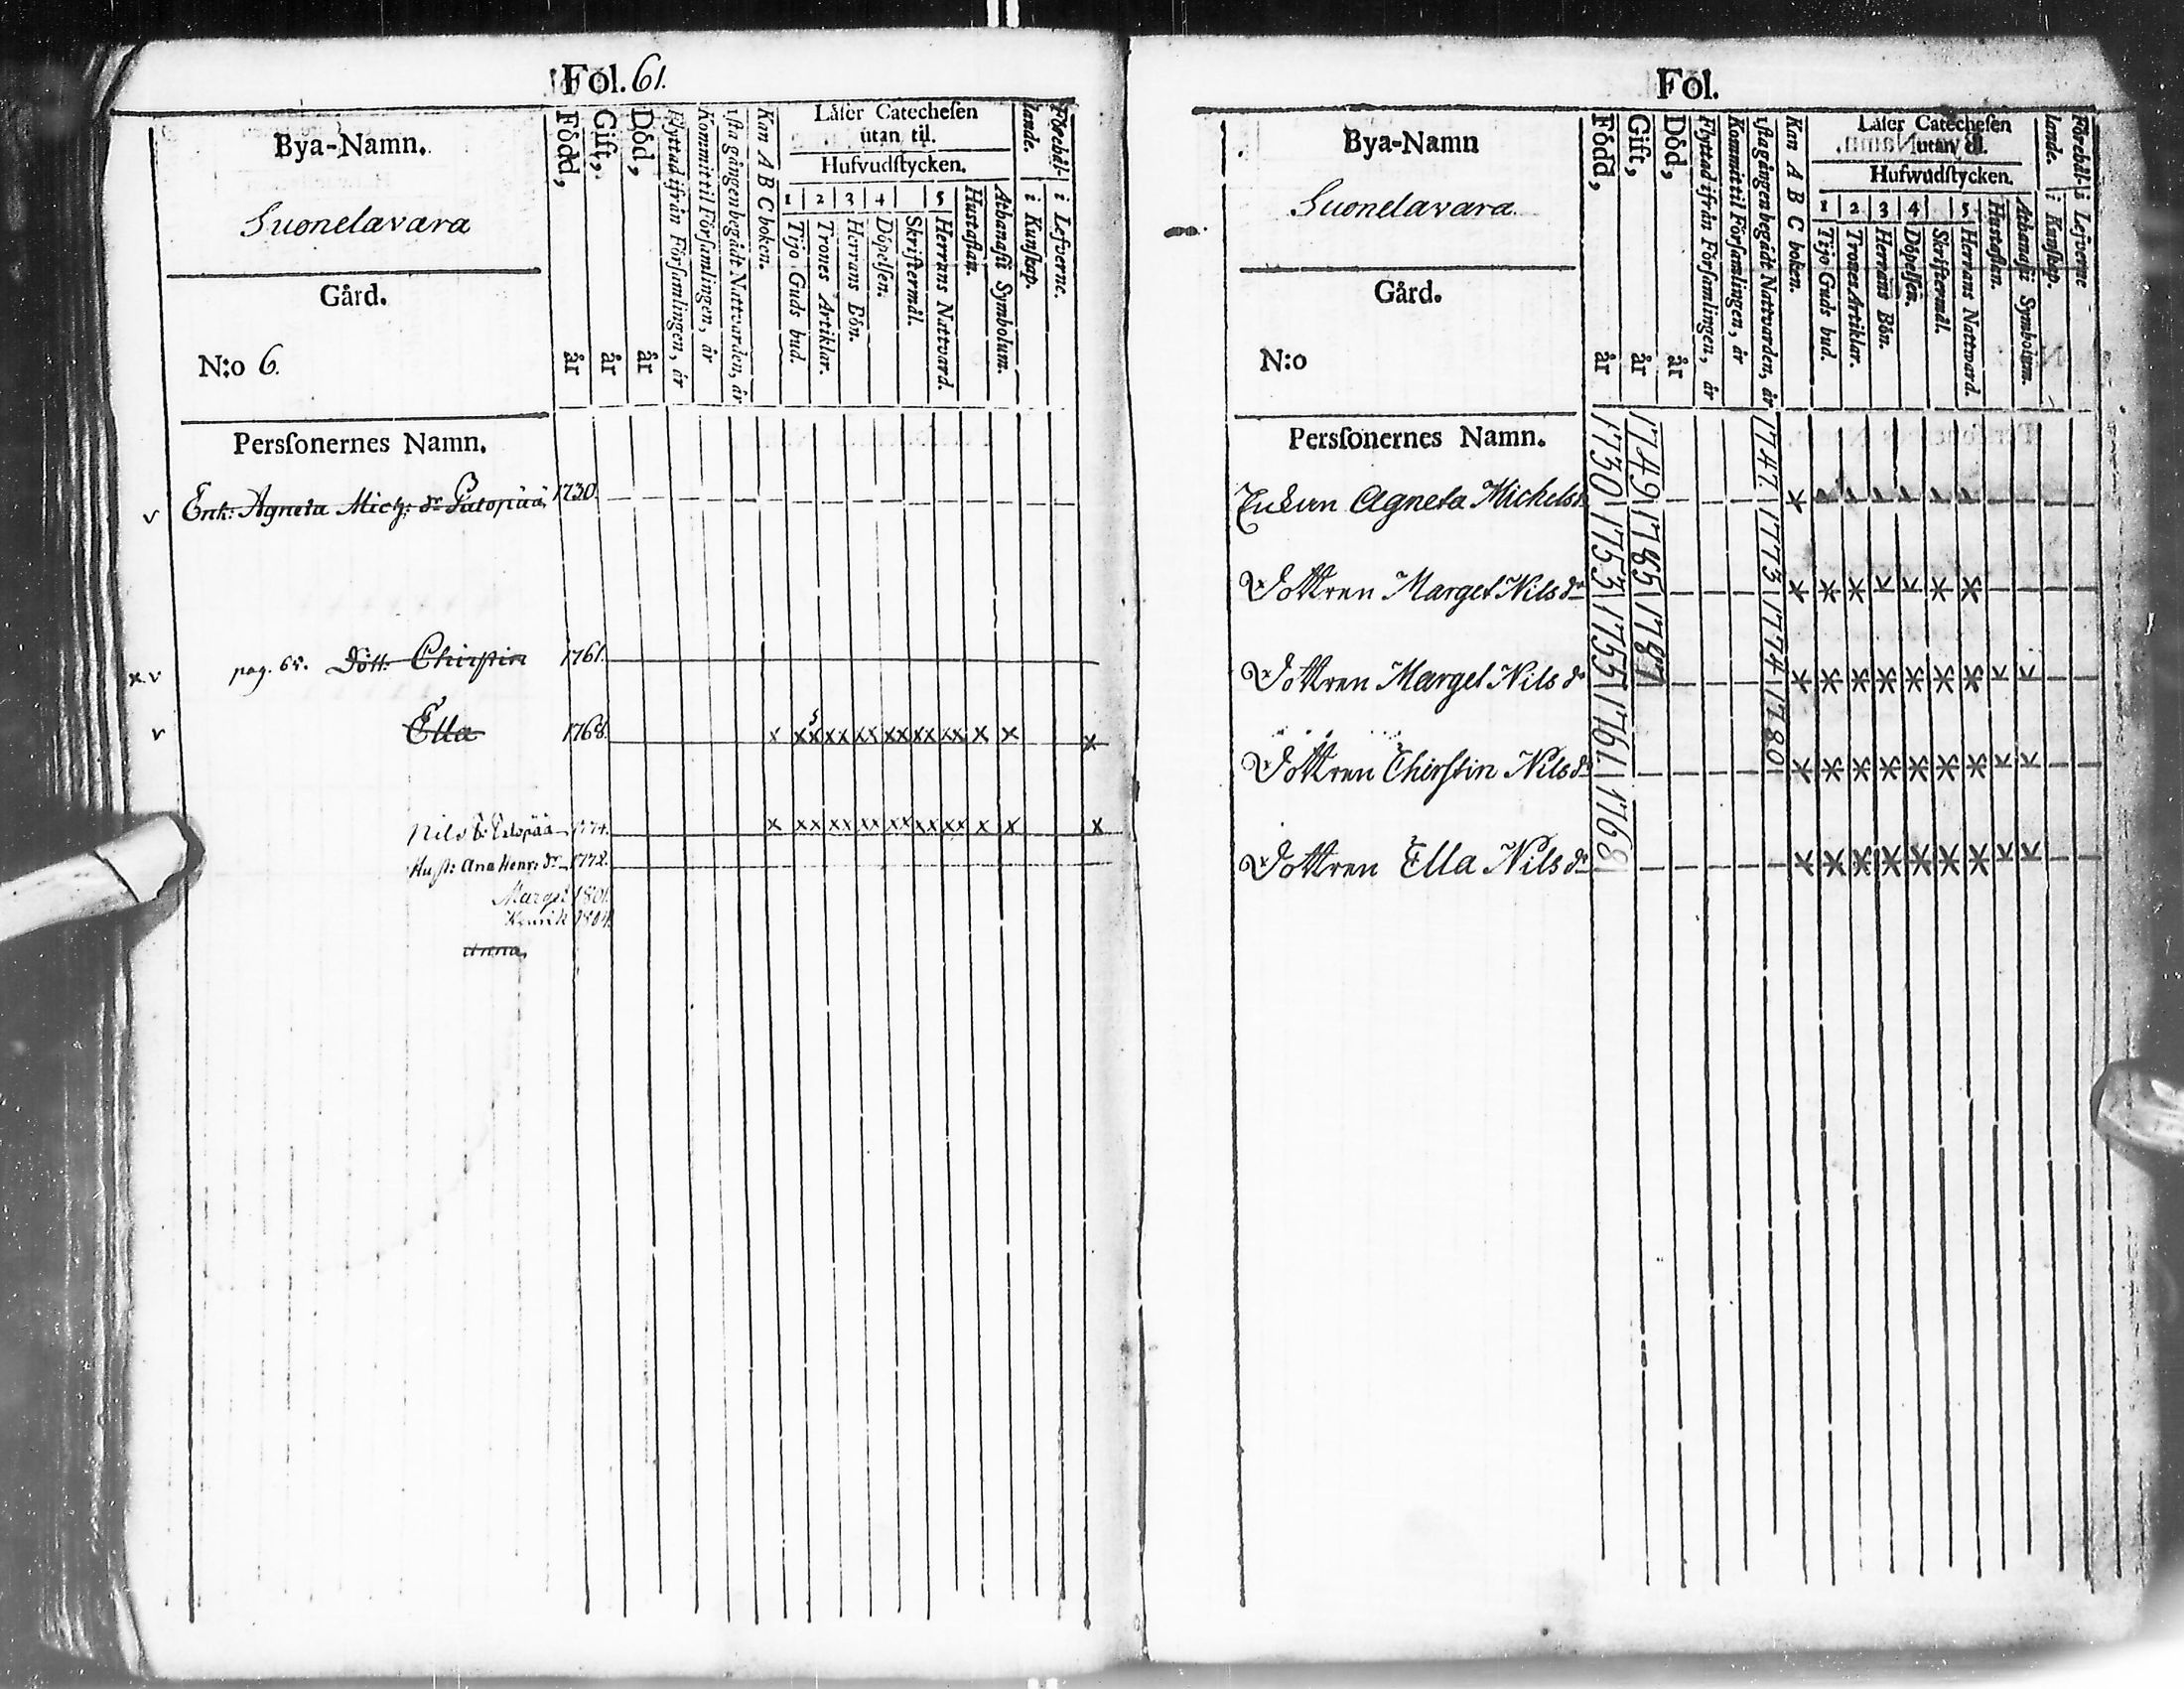 Fol. 61.
Bya-Namn.
Suonelavara
Gård.
N:o 6.
Född, år
Gift, år
Död, år
Flyttad ifrån Församlingen, år
Kommit til Församlingen, år
ista gången begådt Nattvarden, år
Kan A B C boken.
Läser Catechesen
utan til.
Hufvudstycken.
1 2 3 4 5
Tijo Guds bud.
Trones Artiklar.
Herrans Bön.
Döpelsen.
Skriftermål.
Herrans Natvard.
Hustaflan.
Athanasii Symbolum.
Förehål-
lande.
i Kunskap.
i Lefverne.
Perssonernes Namn.
v Enk: Agneta Mich: dr Patopää 1730.
x v pag. 65. Dött. Chirstin 1761.
v Ella 1768. x xx xx xx xx xx xx x x x
Nils Patopää 1774. x xx xx xx xx xx xx x x x
Hust: Ana Henr: dr 1772.
Marget 1801.
Henrik 1804.
Anna
Fol.
Bya-Namn
Suonelavara
Gård.
N:o
Född, år
Gift, år
Död, år
Flyttad ifrån Församlingen, år
Kommit til Församlingen, år
ista gången begådt Natvarden, år
Kan A B C boken.
Läser Catechesen
utan til.
Hufwudstycken.
1 2 3 4 5
Tijo Guds bud.
Trones Artiklar.
Herrans Bön.
Döpelsen.
Skriftermål.
Herrans Nattward.
Hustaflen.
Athanasii Symbolum.
Förehål-
lande.
i Kunskap.
i Lefverne
Perssonernes Namn.
Enkan Agneta Michelsdr 1730 1749 1747
Dottren Marget Nils dr 1753 1785 1773
Dottren Marget Nils dr 1755 1787 1774
Dottren Chirstin Nils dr 1761 1780
Dottren Ella Nils dr 1768